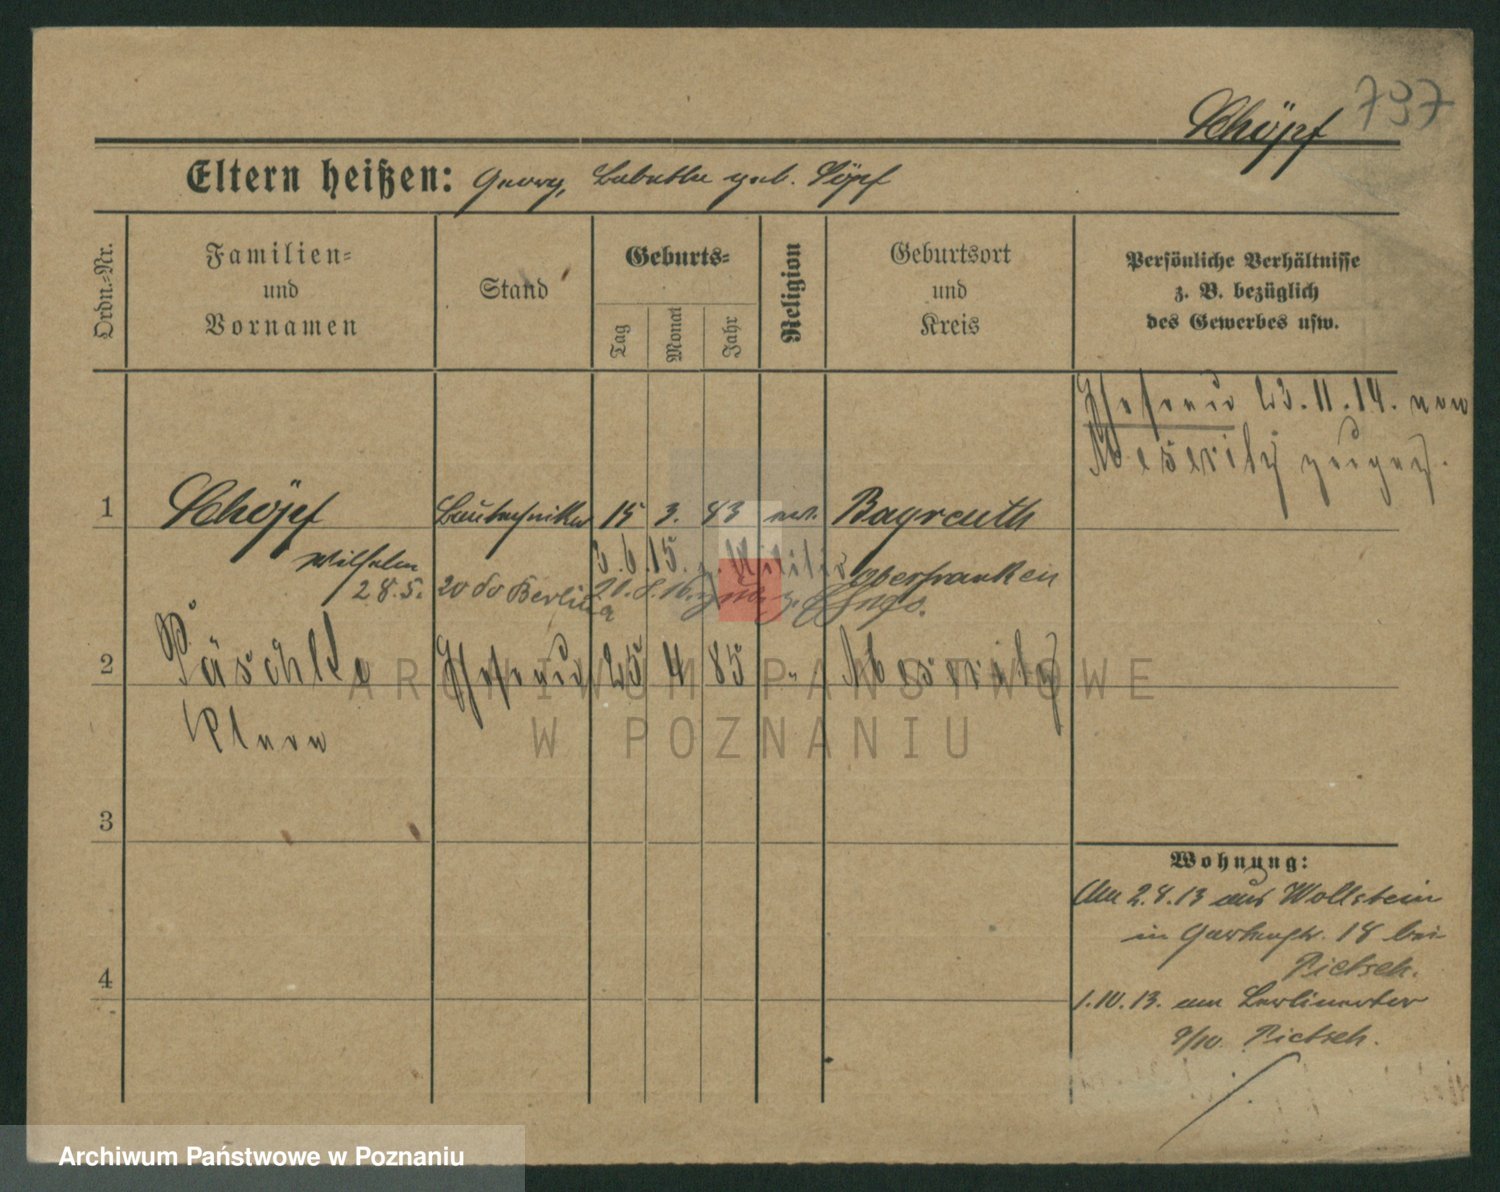 737
Schöpf
Eltern heißen: Georg, Babette geb. Töpf
Ordn.-Nr.
Familien-
und
Vornamen
Stand
Geburts-
Tag
Monat
Jahr
Religion
Geburtsort
und
Kreis
Persönliche Verhältnisse
z. B. bezüglich
des Gewerbes usw.
Ehefrau 23.11.14. von
Meseritz zugez.
1 Schöpf Bautechniker 15 3. 83 ev. Bayreuth
Wilhelm 3.6.15. z. Militär Oberfranken
28.5. 20 do Berlin
2 Päschke Ehefrau 25 4 85 " Meseritz
Klara
3
4
Wohnung:
Am 2.8.13 aus Wollstein
in Gartenstr. 18 bei
Pietsch.
1.10.13. am Berlinertor
9/10. Pietsch.
ARCHIWUM PAŃSTWOWE
W POZNANIU
Archiwum Państwowe w Poznaniu